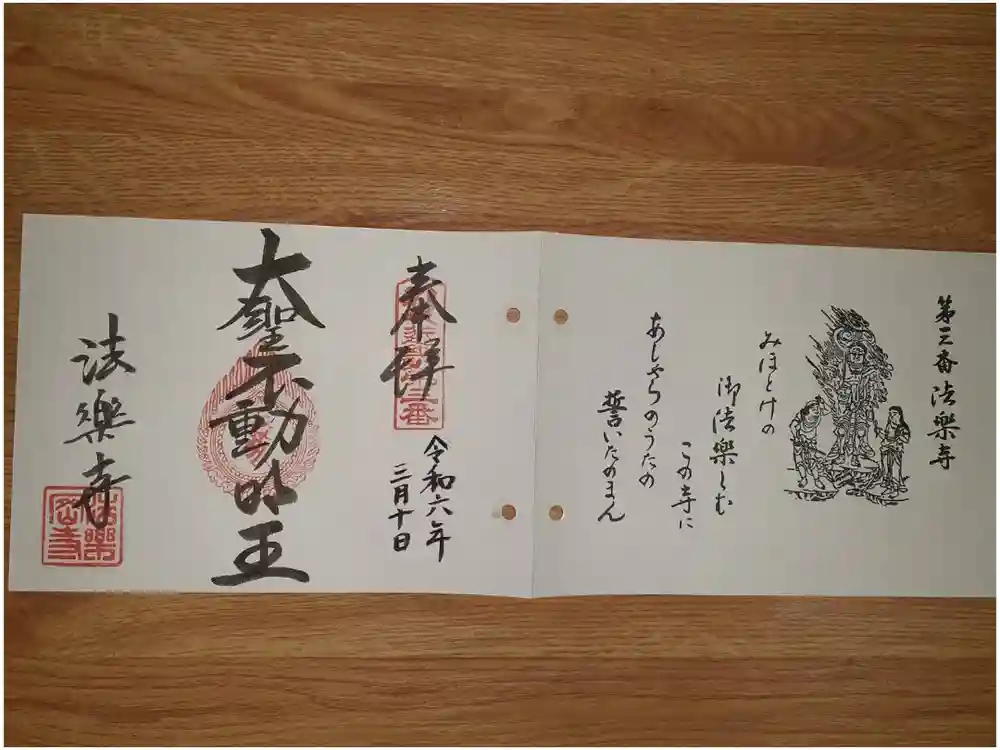 第三番法樂寺
みほとけの
御法樂しむ
この寺に
あしやらのうたの
誓いたのまん
奉拝
令和六年
三月十日
大聖不動明王
法樂寺